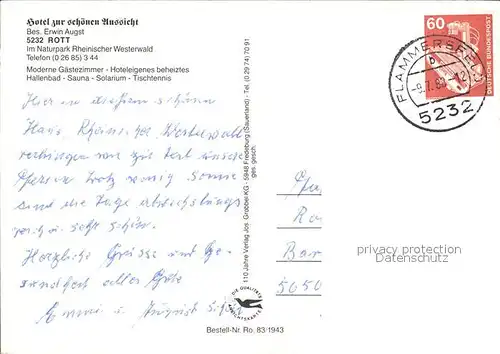 Hotel zur schönen Aussicht
Bes. Erwin Augst
5232 ROTT
Im Naturpark Rheinischer Westerwald
Telefon (0 26 85) 3 44
Moderne Gästezimmer - Hoteleigenes beheiztes
Hallenbad - Sauna - Solarium - Tischtennis
Hier in diesem schönen
Haus, Rhein. Westerwald
verbringen wir zur Zeit unsere
trotz wenig Sonne
sind die Tage abwechslungs
reich u. sehr schön.
Herzliche Grüsse und Ge-
sundheit alles Gute
Emmi u. August
110 Jahre Verlag Jos. Grobbel KG - 5948 Fredeburg (Sauerland) - Tel. (0 29 74) 70 91
ges. gesch.
DIE QUALITÄTS ANSICHTSKARTE
Bestell-Nr. Ro. 83/1943
60
DEUTSCHE BUNDESPOST
FLAMMERSFELD
b
5232
5050
privacy protection
© akpool.com